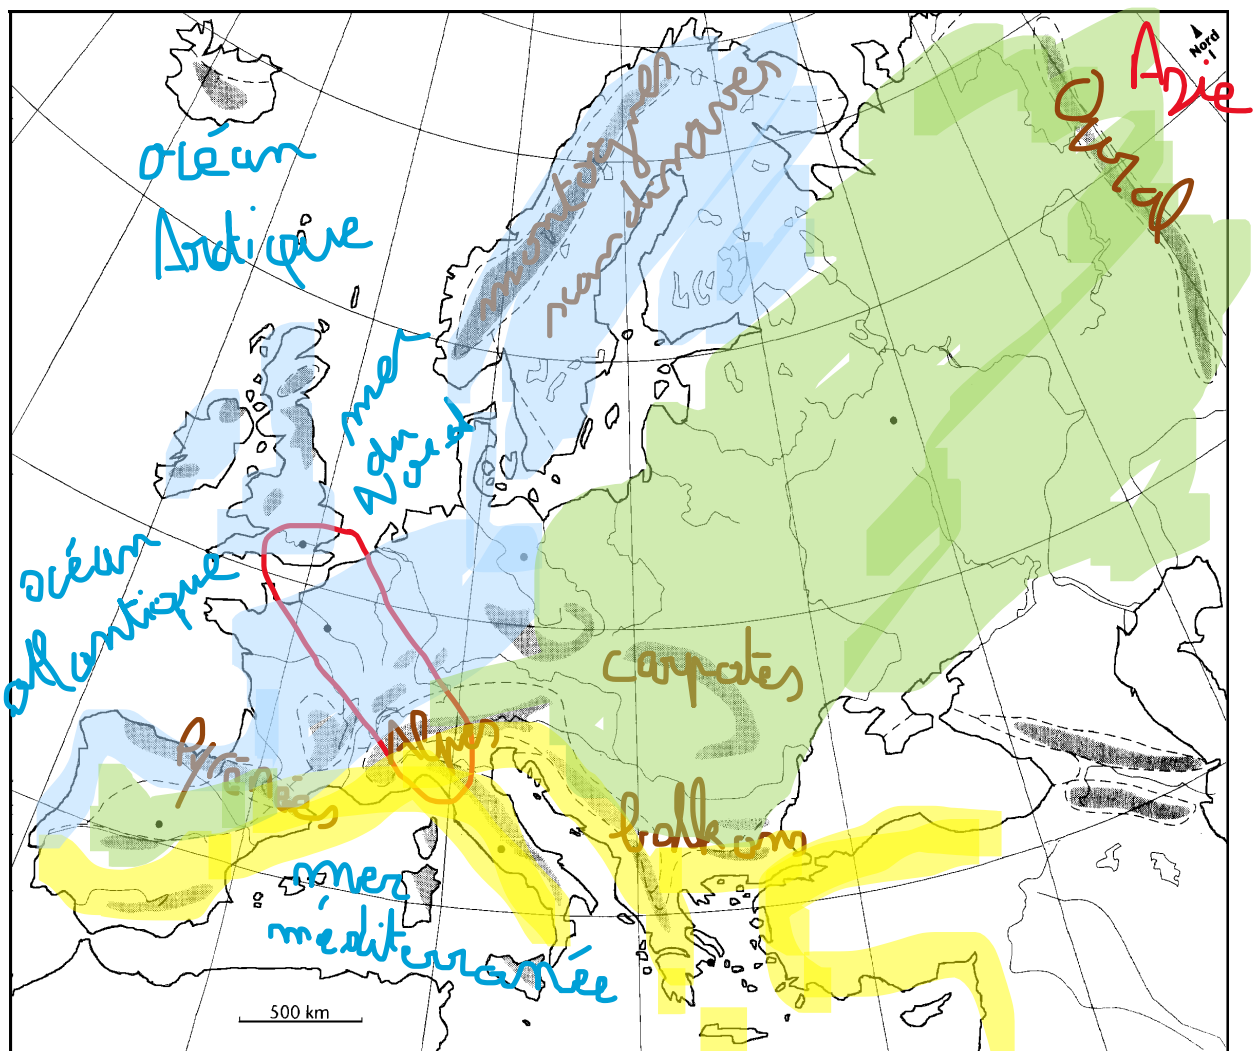 Asie
Nord
Oural
océan
Arctique
montagnes
scandinaves
mer
du
Nord
océan
atlantique
carpates
Pyrénées
Alpes
balkan
mer
méditerranée
500 km